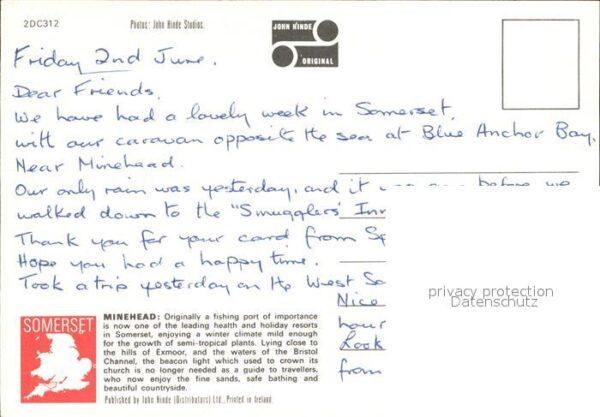 2DC312
Photos: John Hinde Studios.
JOHN HINDE
ORIGINAL
Friday 2nd June.
Dear Friends,
We have had a lovely week in Somerset,
with our caravan opposite the sea at Blue Anchor Bay,
Near Minehead.
Our only rain was yesterday, and it before we
walked down to the "Smugglers' Inn
Thank you for your card from
Hope you had a happy time.
Took a trip yesterday on the West
Nice
hour
Look
from
privacy protection
Datenschutz
SOMERSET
MINEHEAD: Originally a fishing port of importance
is now one of the leading health and holiday resorts
in Somerset, enjoying a winter climate mild enough
for the growth of semi-tropical plants. Lying close to
the hills of Exmoor, and the waters of the Bristol
Channel, the beacon light which used to crown its
church is no longer needed as a guide to travellers,
who now enjoy the fine sands, safe bathing and
beautiful countryside.
Published by John Hinde (Distributors) Ltd., Printed in Ireland.